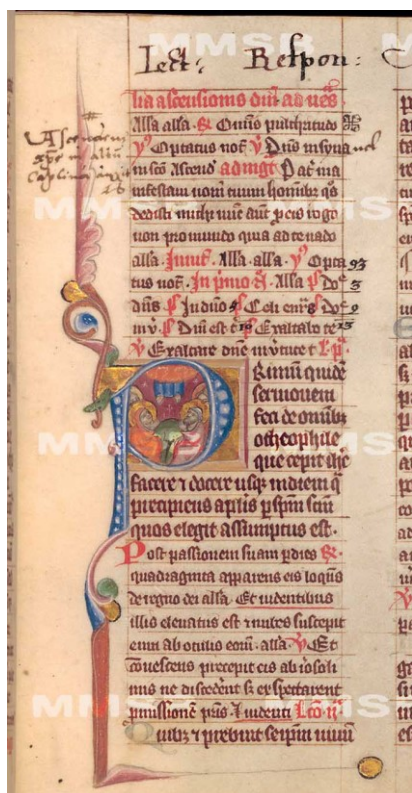 Lect: Respon:
lia ascensionis dnī ad vēs
Alla alla. ℞ Omnis pulchritudo
℣ Optatus not ℣ Dns in syna vel
in scō Ascend ad mgt Pat ma
infestaui nom tuum hominibz qs
dedisti michi nūc aut p eis rogo
non pro mundo quia ad te uado
alla. Inuit. Alla. alla. ℣ Opta 93
tus not. In pmo Alla ps Doe 3
dns ps In dno 4 ps Celi enr 8 ps Doe 9
in v. ps Dni est t 18 ps Exaltabo te 13
℣ Exaltare dne in vtute t
Primum quidē
sermonem
feci de omibz
o theophile
que cepit ihē
facere et docere usqz in diem q
precipiens aplis p spm scm
quos elegit assumptus est.
Post passionem suam p dies ℞.
quadraginta apparens eis loquēs
de regno dei alla. Et videntibus
illis eleuatus est et nubes suscepit
eum ab oculis eorū. alla. ℣ Et
conuescens precepit eis ab iosoli
mis ne discederēt sz expectarent
pmissionē pris Et videnti Lcō ii
Quibz et prebuit seipm viuū